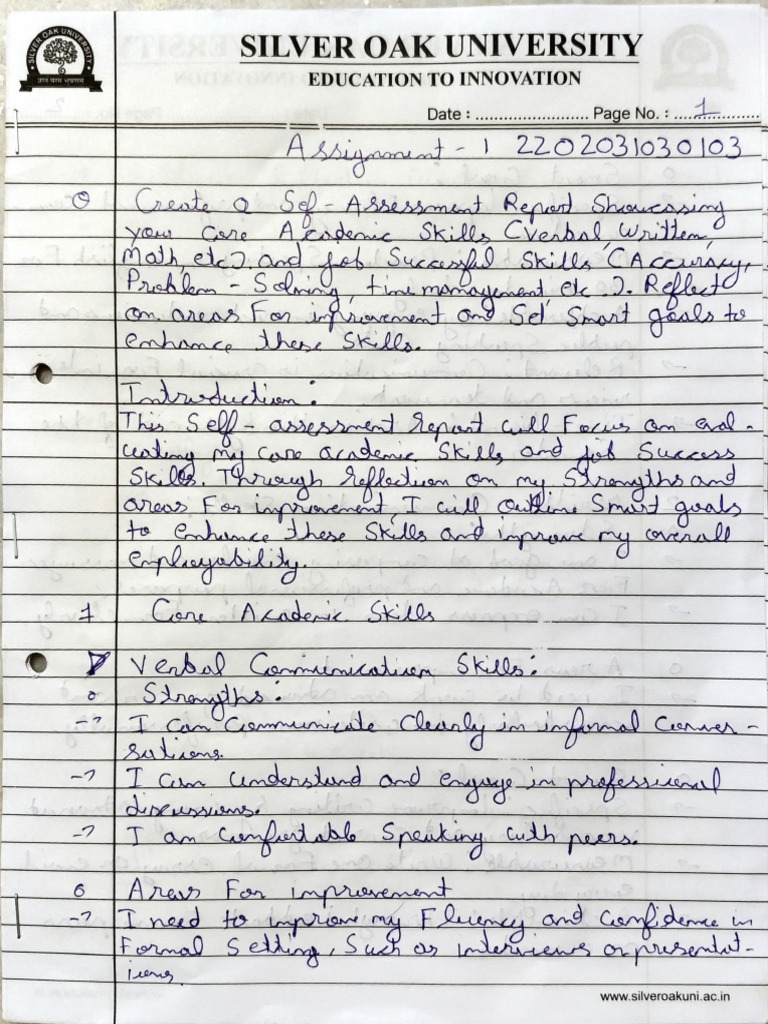 SILVER OAK UNIVERSITY
SILVER OAK UNIVERSITY
EDUCATION TO INNOVATION
Date : ........................ Page No. : ....1............
Assignment - 1 2202031030103
Create a Sef - Assessment Report Showcasing
your Core Academic Skills (Verbal, Written,
Math, etc.) and job Successful Skills (Accuracy,
Problem - Solving, time management, etc.). Reflect
on areas For improvement and Set Smart goals to
enhance these Skills.
Introduction :
This Self - assessment report will Focus on eval -
uating my core academic Skills and job Success
Skills. Through reflection on my Strengths and
areas For improvement, I will outline Smart goals
to enhance these Skills and improve my overall
employability.
1 Core Academic Skills
Verbal Communication Skills :
o Strengths :
-> I can Communicate Clearly in informal Conver -
sations.
-> I can understand and engage in professional
discussions.
-> I am Comfortable Speaking with peers.
o Areas For improvement
-> I need to improve my Fluency and Confidence in
Formal Setting, Such as interviews or presentat -
ions.
www.silveroakuni.ac.in